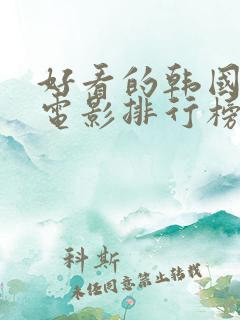 好看的韩國
電影排行榜
科斯
未经同意禁止转载